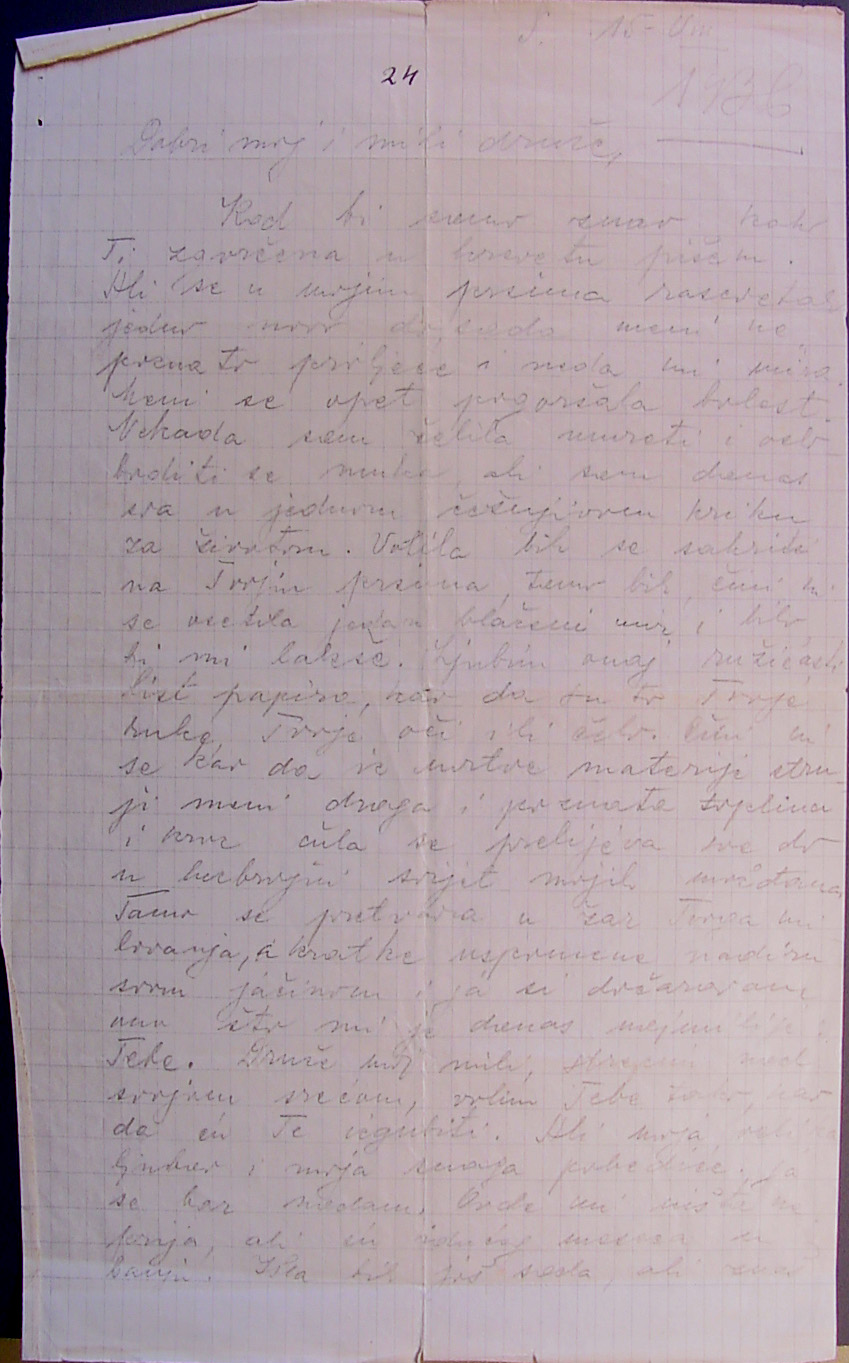 S. 15-VIII
24
1936
Dobri moj i mili druže,
Kad bi samo znao kako
Ti zgrčena u krevetu pišem.
Ali se u mojim prsima rascvetalo
jedno novo do sada meni ne
poznato proljeće i neda mi mira.
Meni se opet pogoršala bolest.
Nekada sam želila umreti i oslo-
boditi se muka, ali sam danas
sva u jednom čežnjivom kriku
za životom. Volila bih se sakriti
na Tvojim prsima, tamo bih, čini mi
se osetila jedan blaženi mir i bilo
bi mi lakše. Ljubim onaj ružičasti
list papira, kao da su to Tvoje
ruke, Tvoje oči ili čelo. Čini mi
se kao da iz mrtve materije stru-
ji meni draga i poznata toplina
i kroz čula se prelijeva sve do
u bezbrojni svijet mojih moždana
Tamo se pretvara u žar Tvoga mi
lovanja, a kratke uspomene nadiru
svom jačinom i ja si dočaravam
ono što mi je danas najmilije:
Tebe. Druže moj mili, strepim nad
svojom srećom, volim Tebe tako, kao
da ću Te izgubiti. Ali moja
ljubav i moja snaga pobediće. Ja
se bar nadam. Ovde mi ništa ne
prija, ali ću idućeg meseca u
banju. Išla bih još sada, ali